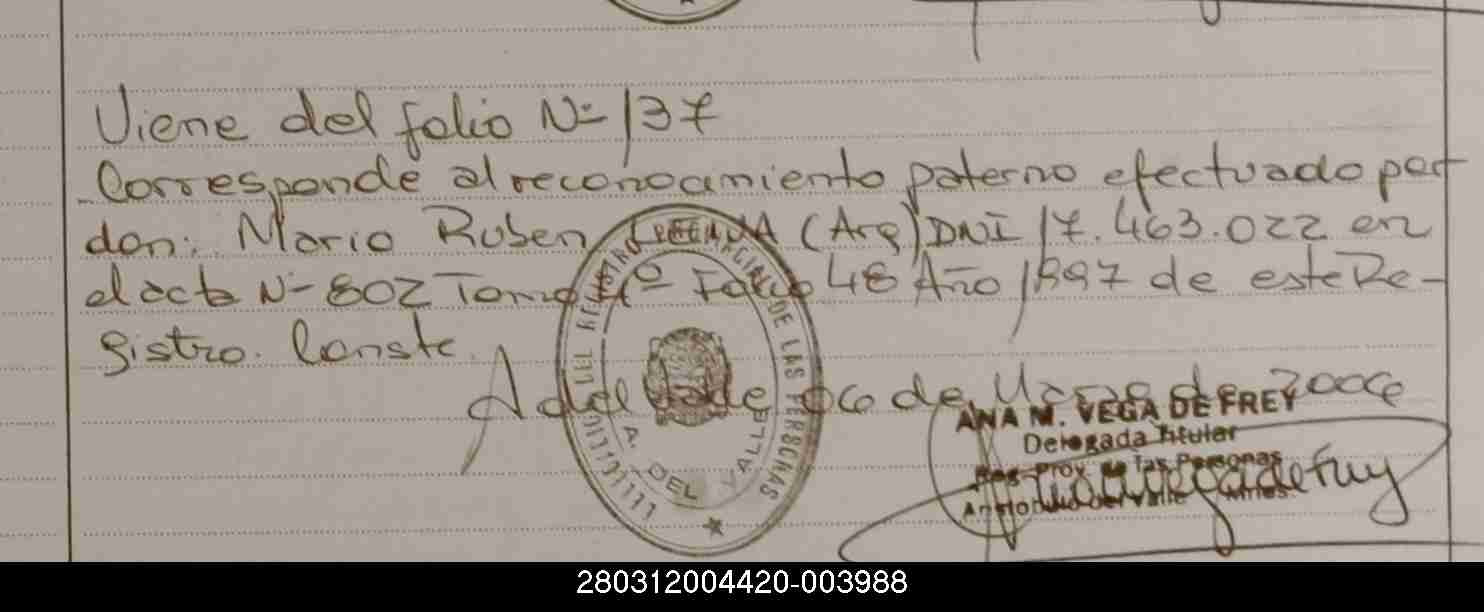 Viene del folio Nº 137
Corresponde al reconocimiento paterno efectuado por
don: Mario Ruben (Arg) DNI 17.463.022 en
el acta Nº 802 Tomo 4º Folio 48 Año 1997 de este Re-
gistro. Conste.
A. del Valle 06 de Marzo de 2006
DEL REGISTRO DE LAS PERSONAS
A. DEL VALLE
ANA M. VEGA DE FREY
Delegada Titular
Reg. Prov. de las Personas
Aristóbulo del Valle Mnes.
280312004420-003988